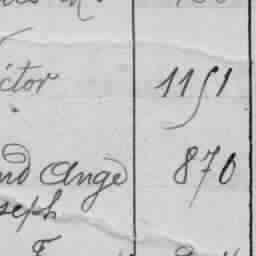 ctor 1151
nd Ange 870
seph